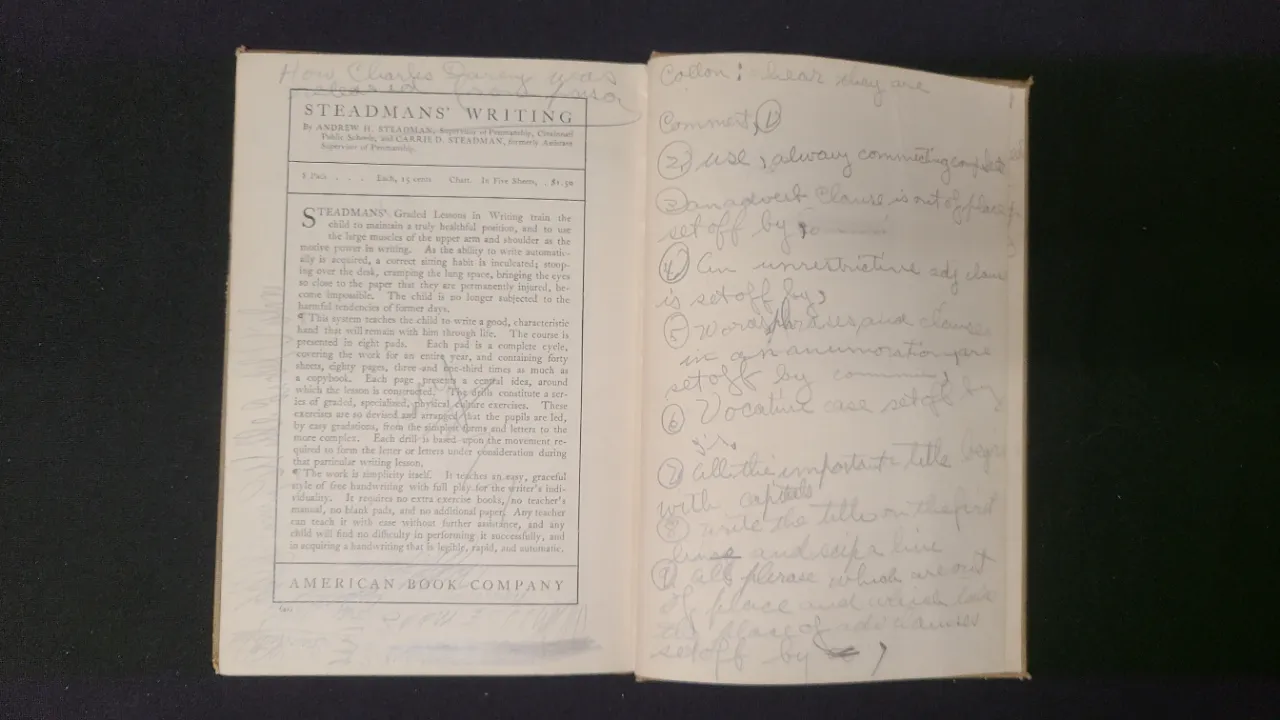 How Charles Darney was
released from
STEADMANS' WRITING
By ANDREW H. STEADMAN, Supervisor of Penmanship, Cincinnati
Public Schools, and CARRIE D. STEADMAN, formerly Assistant
Supervisor of Penmanship.
8 Pads . . . Each, 15 cents Chart. In Five Sheets, . $1.50
STEADMANS' Graded Lessons in Writing train the
child to maintain a truly healthful position, and to use
the large muscles of the upper arm and shoulder as the
motive power in writing. As the ability to write automatic-
ally is acquired, a correct sitting habit is inculcated; stoop-
ing over the desk, cramping the lung space, bringing the eyes
so close to the paper that they are permanently injured, be-
come impossible. The child is no longer subjected to the
harmful tendencies of former days.
¶ This system teaches the child to write a good, characteristic
hand that will remain with him through life. The course is
presented in eight pads. Each pad is a complete cycle,
covering the work for an entire year, and containing forty
sheets, eighty pages, three and one-third times as much as
a copybook. Each page presents a central idea, around
which the lesson is constructed. The drills constitute a ser-
ies of graded, specialized, physical culture exercises. These
exercises are so devised and arranged that the pupils are led,
by easy gradations, from the simplest forms and letters to the
more complex. Each drill is based upon the movement re-
quired to form the letter or letters under consideration during
that particular writing lesson.
¶ The work is simplicity itself. It teaches an easy, graceful
style of free handwriting with full play for the writer's indi-
viduality. It requires no extra exercise books, no teacher's
manual, no blank pads, and no additional paper. Any teacher
can teach it with ease without further assistance, and any
child will find no difficulty in performing it successfully, and
in acquiring a handwriting that is legible, rapid, and automatic.
AMERICAN BOOK COMPANY
Collon: hear they are
Comment, 1
2, use , alway connecting
3 an adverb Clause is out of place
set off by ,
4 An unrestrictive adj clause
is set off by ,
5 Words phrases and clauses
in an anumoration are
set off by ,
6 Vocative case set off by
7 all the important title begin
with capitals
8 write the title on the first
line and scip a line
9 all phrase which are out
of place and which have
the place of adv clauses
set off by ,